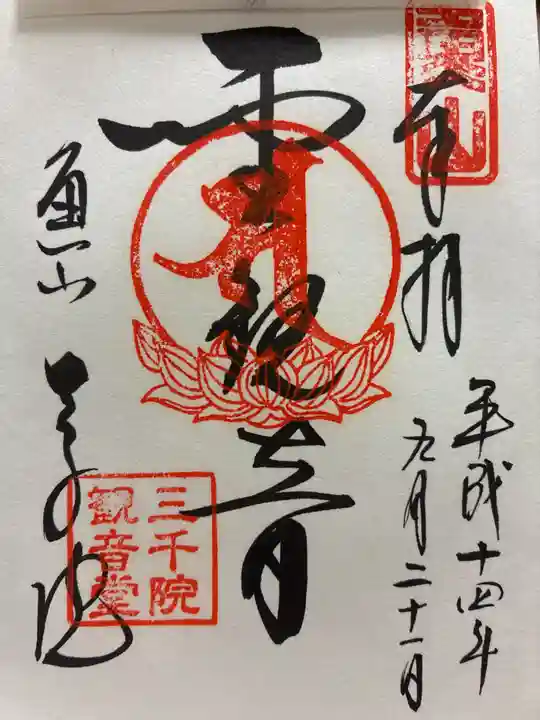 奉拝
平成十四年
九月二十一日
観音
魚山
三千院
魚山
三千院
観音堂